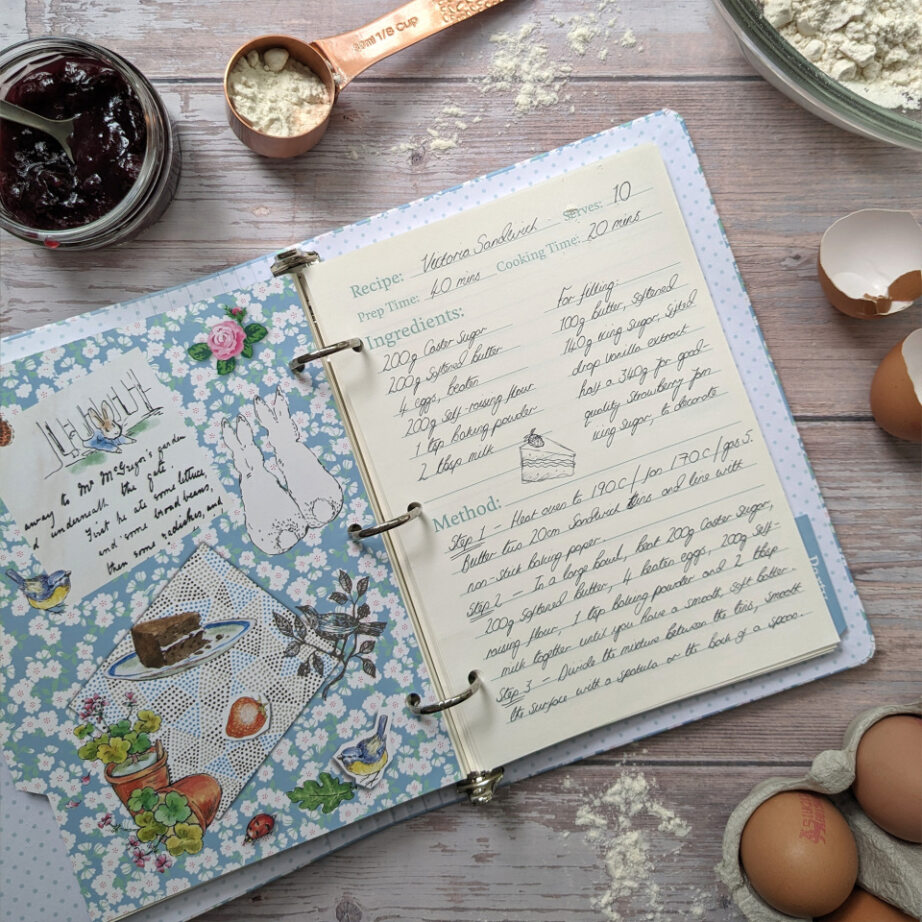 30ml 1/8 CUP
away to Mr McGregor's garden
d underneath the gate.
First he ate some lettuce,
and some broad beans,
then some radishes, and
Recipe: Victoria Sandwich Serves: 10
Prep Time: 40 mins Cooking Time: 20 mins
Ingredients:
200g Caster Sugar
200g Softened butter
4 eggs, beaten
200g self-raising flour
1 tsp baking powder
2 tbsp milk
For filling:
100g butter, softened
140g icing sugar, sifted
drop vanilla extract
half a 340g for good-
quality strawberry jam
icing sugar, to decorate
Method:
Step 1 - Heat oven to 190C / fan 170C / gas 5.
Butter two 20cm Sandwich tins and line with
non-stick baking paper.
Step 2 - In a large bowl, beat 200g Caster Sugar,
200g softened butter, 4 beaten eggs, 200g Self-
raising flour, 1 tsp baking powder and 2 tbsp
milk together until you have a smooth, soft batter.
Step 3 - Divide the mixture between the tins, smooth
the surface with a spatula or the back of a spoon.